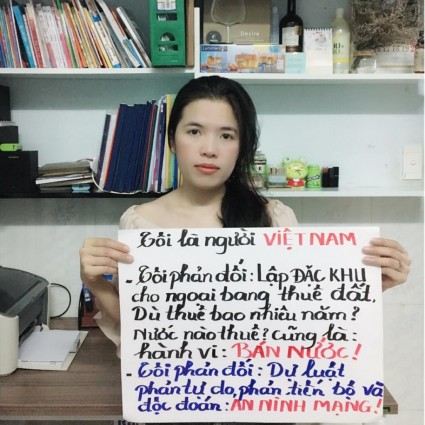 Tôi là người VIỆT NAM
- Tôi phản đối: Lập ĐẶC KHU
cho ngoại bang thuê đất,
Dù thuê bao nhiêu năm?
Nước nào thuê? cũng là:
hành vi: BÁN NƯỚC!
- Tôi phản đối: Dự luật
phản tự do, phản tiến bộ và
độc đoán: AN NINH MẠNG!